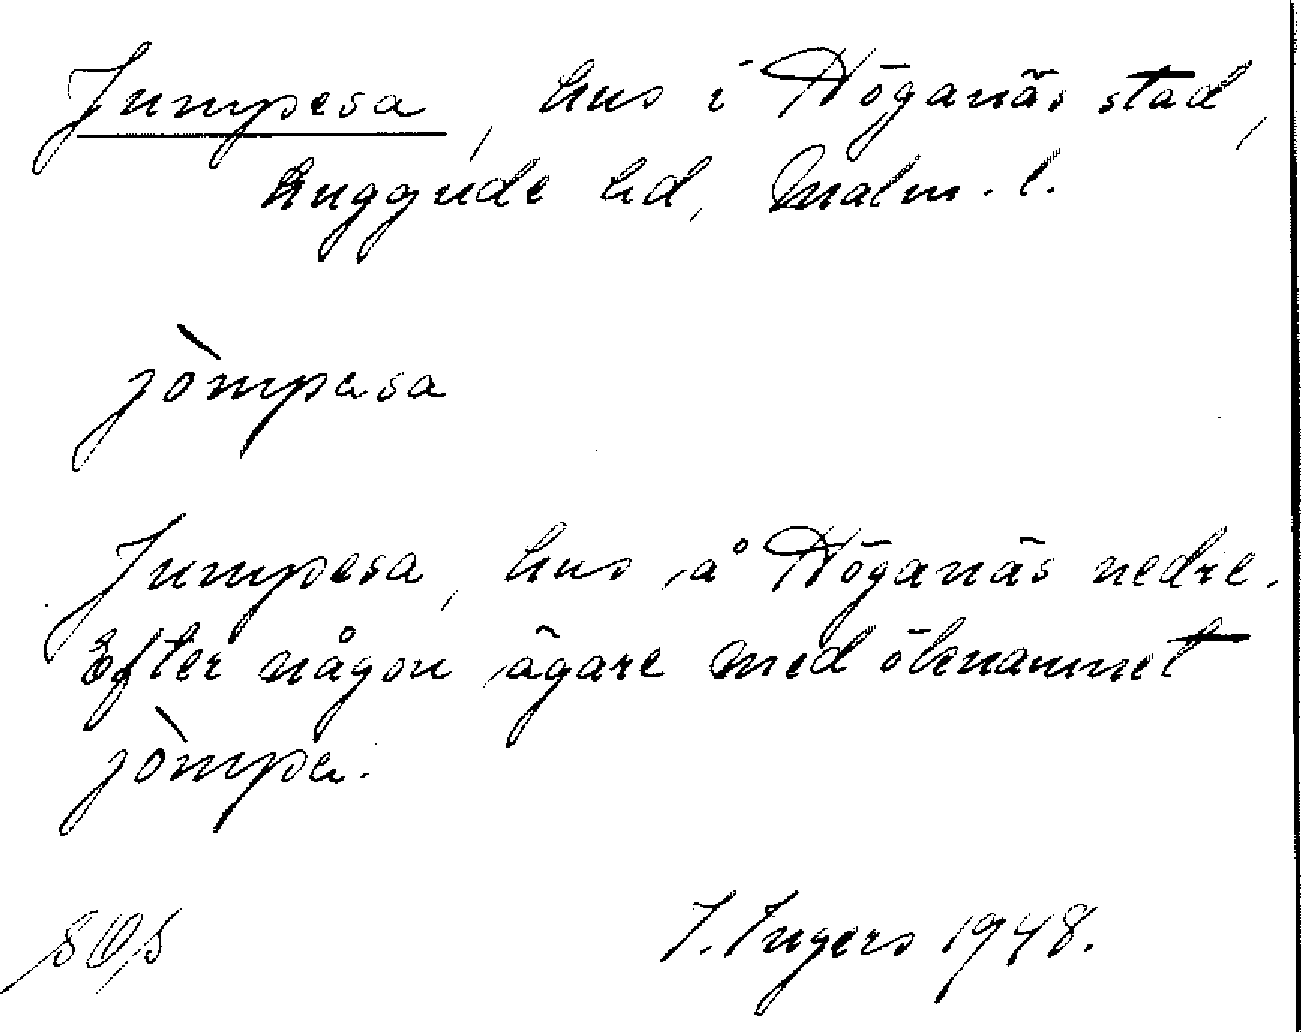 Jumpesa, hus i Höganäs stad,
Luggude hd, Malm. l.
jòmpasa
Jumpesa, hus å Höganäs nedre.
Efter någon ägare med öknamnet
jòmpa.
I. Ingers 1948.